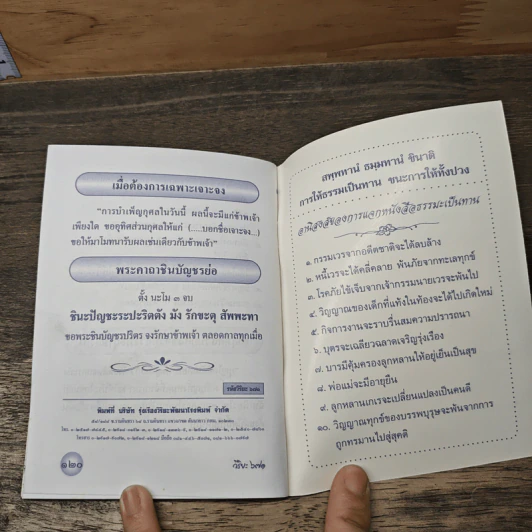 เมื่อต้องการเฉพาะเจาะจง
“การบำเพ็ญกุศลในวันนี้ ผลนี้จะมีแก่ข้าพเจ้า
เพียงใด ขออุทิศส่วนกุศลให้แก่ (.....บอกชื่อเจาะจง...)
ขอให้มาโมทนารับผลเช่นเดียวกับข้าพเจ้า”
พระคาถาชินบัญชรย่อ
ตั้ง นะโม ๓ จบ
ชินะปัญชะระปะริตตัง มัง รักขะตุ สัพพะทา
ขอพระชินบัญชรปริตร จงรักษาข้าพเจ้า ตลอดกาลทุกเมื่อ
พิมพ์ที่ บริษัท รุ่งเรืองวิริยะพัฒนาโรงพิมพ์ จำกัด
๑๒๐
วิริยะ ๖๗๑
สพฺพทานํ ธมฺมทานํ ชินาติ
การให้ธรรมเป็นทาน ชนะการให้ทั้งปวง
อานิสงส์ของการแจกหนังสือธรรมะเป็นทาน
๑. กรรมเวรจากอดีตชาติจะได้ลบล้าง
๒. หนี้เวรจะได้คลี่คลาย พ้นภัยจากทะเลทุกข์
๓. โรคภัยไข้เจ็บจากเจ้ากรรมนายเวรจะพ้นไป
๔. วิญญาณของเด็กที่แท้งในท้องจะได้ไปเกิดใหม่
๕. กิจการงานจะราบรื่นสมความปรารถนา
๖. บุตรจะเฉลียวฉลาดเจริญรุ่งเรือง
๗. บารมีคุ้มครองลูกหลานให้อยู่เย็นเป็นสุข
๘. พ่อแม่จะมีอายุยืน
๙. ลูกหลานเกเรจะเปลี่ยนแปลงเป็นคนดี
๑๐. วิญญาณทุกข์ของบรรพบุรุษจะพ้นจากการ
ถูกทรมานไปสู่สุคติ